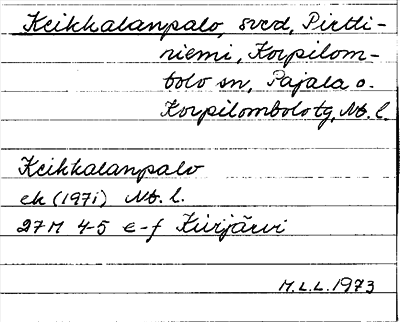 Keikkalanpalo, sved, Pirtti-
niemi, Korpilom-
bolo sn, Pajala o.
Korpilombolo tg, Nb. l.
Keikkalanpalo
ek (1971) Nb. l.
27M 4-5 e-f Kuirjärvi
M.L.L. 1973